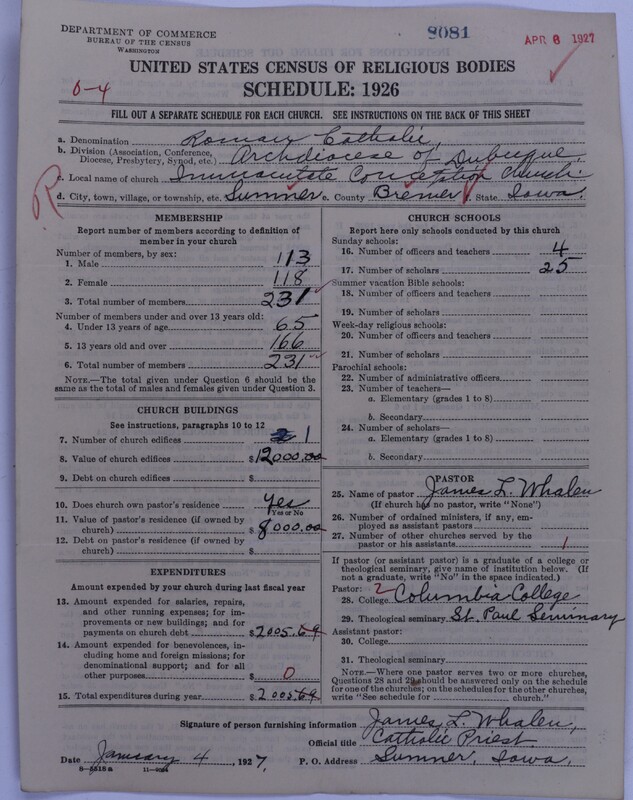 DEPARTMENT OF COMMERCE
BUREAU OF THE CENSUS
WASHINGTON
9081
APR 8 1927
0-4
UNITED STATES CENSUS OF RELIGIOUS BODIES
SCHEDULE: 1926
FILL OUT A SEPARATE SCHEDULE FOR EACH CHURCH. SEE INSTRUCTIONS ON THE BACK OF THIS SHEET
a. Denomination Roman Catholic,
b. Division (Association, Conference, Diocese, Presbytery, Synod, etc.) Archdiocese of Dubuque,
c. Local name of church Immaculate Conception Church
d. City, town, village, or township, etc. Sumner e. County Bremer f. State Iowa.
R
MEMBERSHIP
Report number of members according to definition of
member in your church
Number of members, by sex:
1. Male 113
2. Female 118
3. Total number of members 231
Number of members under and over 13 years old:
4. Under 13 years of age 65
5. 13 years old and over 166
6. Total number of members 231
NOTE.—The total given under Question 6 should be
same as the total of males and females given under Question 3.
CHURCH BUILDINGS
See instructions, paragraphs 10 to 12
7. Number of church edifices 1
8. Value of church edifices $12000.00
9. Debt on church edifices $
10. Does church own pastor's residence? Yes
Yes or No
11. Value of pastor's residence (if owned by
church) $8000.00
12. Debt on pastor's residence (if owned by
church) $
EXPENDITURES
Amount expended by your church during last fiscal year
13. Amount expended for salaries, repairs,
and other running expenses; for im-
provements or new buildings; and for
payments on church debt $2005.69
14. Amount expended for benevolences, in-
cluding home and foreign missions; for
denominational support; and for all
other purposes $ 0
15. Total expenditures during year $2005.69
CHURCH SCHOOLS
Report here only schools conducted by this church
Sunday schools:
16. Number of officers and teachers 4
17. Number of scholars 25
Summer vacation Bible schools:
18. Number of officers and teachers
19. Number of scholars
Week-day religious schools:
20. Number of officers and teachers
21. Number of scholars
Parochial schools:
22. Number of administrative officers
23. Number of teachers—
a. Elementary (grades 1 to 8)
b. Secondary
24. Number of scholars—
a. Elementary (grades 1 to 8)
b. Secondary
PASTOR
25. Name of pastor James L. Whalen
(If church has no pastor, write "None")
26. Number of ordained ministers, if any, em-
ployed as assistant pastors
27. Number of other churches served by the
pastor or his assistants 1
If pastor (or assistant pastor) is a graduate of a college or
theological seminary, give name of institution below. (If
not a graduate, write "No" in the space indicated.)
Pastor: 2
28. College Columbia College
29. Theological seminary St. Paul Seminary
Assistant pastor:
30. College
31. Theological seminary
NOTE.—Where one pastor serves two or more churches,
Questions 28 and 29 should be answered only on the schedule
for one of the churches; on the schedules for the other churches,
write "See schedule for church."
Signature of person furnishing information James L. Whalen,
Official title Catholic Priest
Date January 4, 1927. P. O. Address Sumner, Iowa.